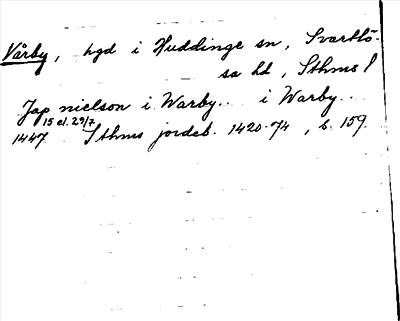 Vårby, hgd i Huddinge sn, Svartlö-
sa hd, Sthms l
Jap nielson i Warby.. i Warby..
15 el. 29/7
1447 Sthms jordeb. 1420-74, s. 159.